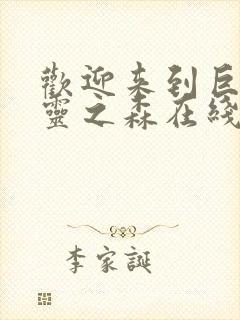 歡迎来到巨
靈之森在綫
李家誕